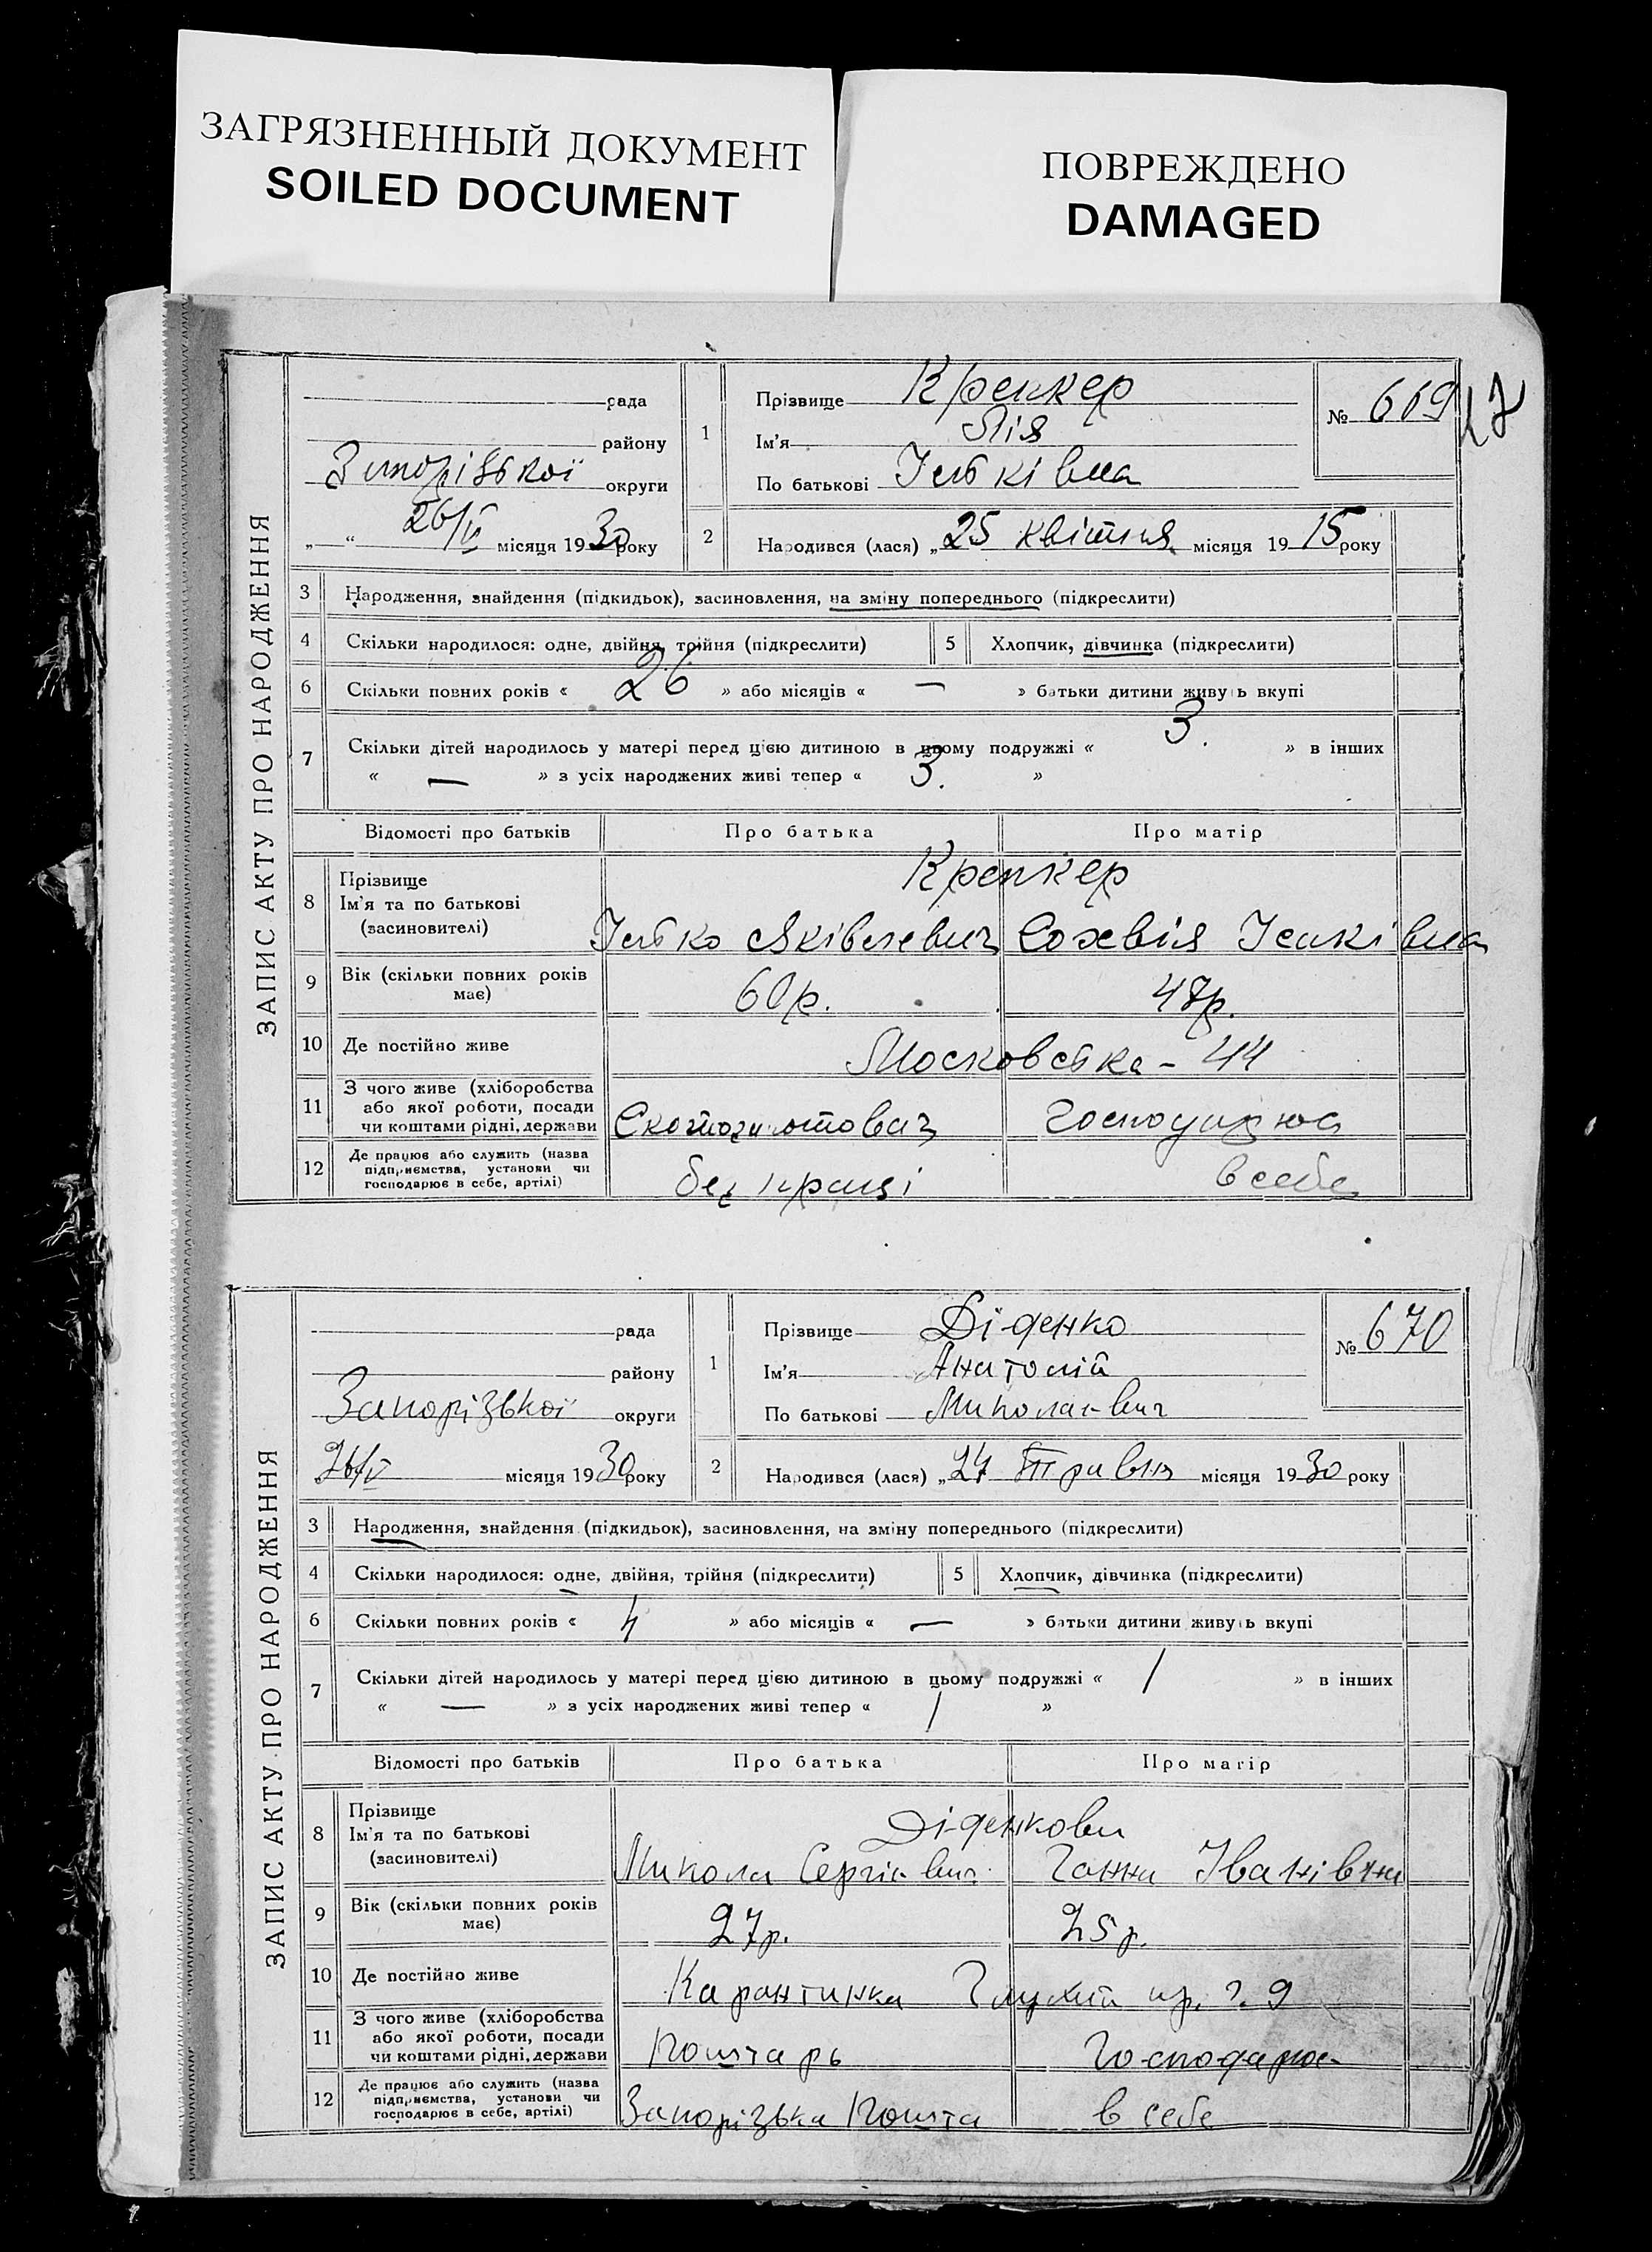 ЗАГРЯЗНЕННЫЙ ДОКУМЕНТ
SOILED DOCUMENT
ПОВРЕЖДЕНО
DAMAGED
ЗАПИС АКТУ ПРО НАРОДЖЕННЯ
рада
району
округи
26/V місяця 1930 року
1
Прізвище Крепкер
Ім'я Лія
По батькові
№ 669
17
2
Народився (лася) „25 квітня місяця 1915 року
3 Народження, знайдення (підкидьок), засиновлення, на зміну попереднього (підкреслити)
4 Скільки народилося: одне, двійня, трійня (підкреслити)
5 Хлопчик, дівчинка (підкреслити)
6 Скільки повних років « 26 » або місяців « — » батьки дитини живуть вкупі
7 Скільки дітей народилось у матері перед цією дитиною в цьому подружжі « 3. » в інших
« — » з усіх народжених живі тепер « 3. »
Відомості про батьків Про батька Про матір
8 Прізвище
Ім'я та по батькові
(засновителі)
Крепкер
9 Вік (скільки повних років має) 60р. 47р.
10 Де постійно живе Московська - 44
11 З чого живе (хліборобства
або якої роботи, посади
чи коштами рідні, держави
12 Де працює або служить (назва
підприємства, установи чи
господарює в себе, артілі)
без праці в себе
ЗАПИС АКТУ ПРО НАРОДЖЕННЯ
рада
району
Запорізької округи
26/V місяця 1930 року
1
Прізвище Діденко
Ім'я Анатолій
По батькові Миколаєвич
№ 670
2
Народився (лася) „24 Травня місяця 1930 року
3 Народження, знайдення (підкидьок), засиновлення, на зміну попереднього (підкреслити)
4 Скільки народилося: одне, двійня, трійня (підкреслити)
5 Хлопчик, дівчинка (підкреслити)
6 Скільки повних років « 4 » або місяців « — » батьки дитини живуть вкупі
7 Скільки дітей народилось у матері перед цією дитиною в цьому подружжі « 1 » в інших
« — » з усіх народжених живі тепер « 1 »
Відомості про батьків Про батька Про матір
8 Прізвище
Ім'я та по батькові
(засиновителі)
Діденкови
Микола Сергієвич Ганна Іванівна
9 Вік (скільки повних років має) 27р. 25р.
10 Де постійно живе Карантинка 9
11 З чого живе (хліборобства
або якої роботи, посади
чи коштами рідні, держави
Поштарь Господарює
12 Де працює або служить (назва
підприємства, установи чи
господарює в себе, артілі)
Запорізька Пошта в себе